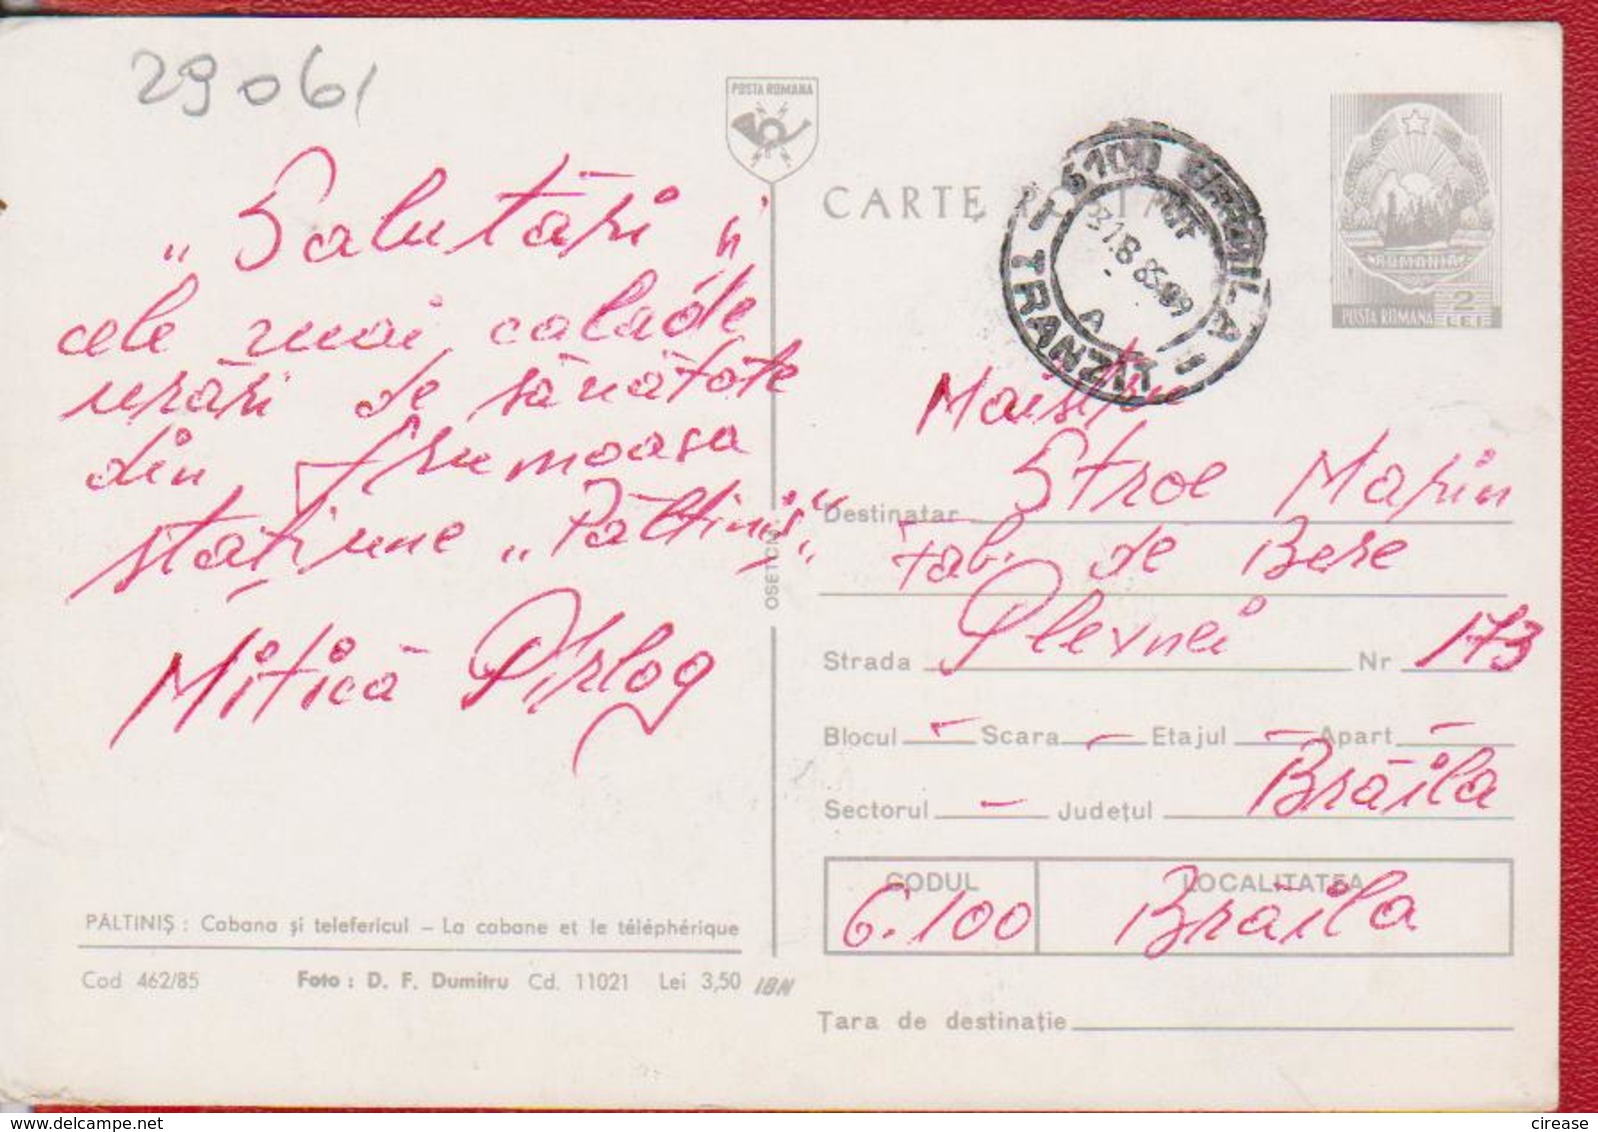 29061
POSTA ROMANA
„Salutări"
cele mai calade
urări de sănătate
din frumoasa
stațiune „Păltiniș"
Mitică Pîrlog
PĂLTINIȘ : Cabana și telefericul – La cabane et le téléphérique
Cod 462/85 Foto : D. F. Dumitru Cd. 11021 Lei 3,50 IBN
CARTE
6100 BRĂILA
31.8.85-09
A
TRANZIT
ROMANIA
2
POSTA ROMANA LEI
Maistru
Destinatar Stroe Marin
Fab. de Bere
Strada Plevnei Nr 173
Blocul – Scara – Etajul – Apart –
Sectorul – Județul Brăila
CODUL LOCALITATEA
6.100 Brăila
Țara de destinație
© Delcampe.net cirease